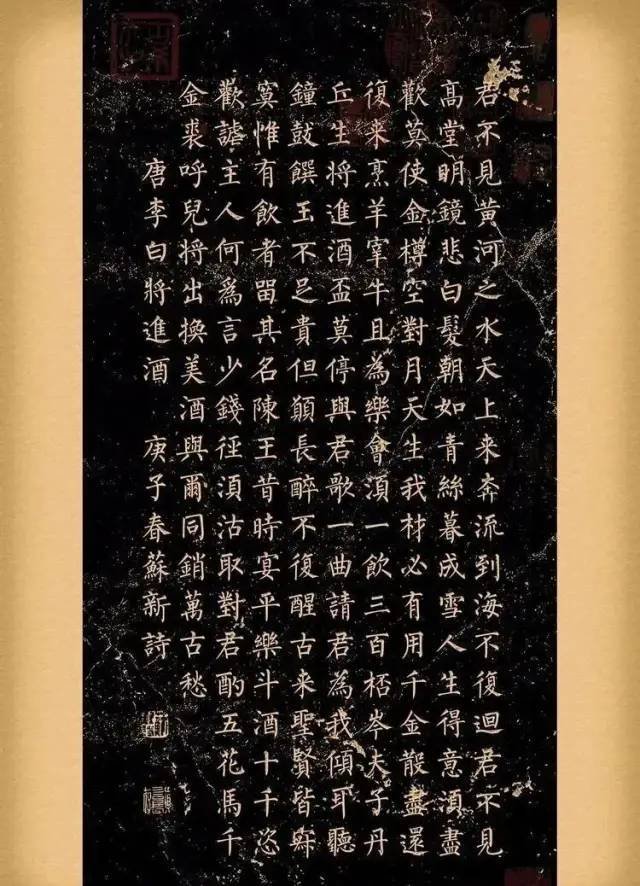 君不見黃河之水天上来奔流到海不復迴君不見
高堂明鏡悲白髮朝如青絲暮成雪人生得意湏盡
歡莫使金樽空對月天生我材必有用千金散盡還
復来烹羊宰牛且為樂會湏一飲三百桮岑夫子丹
丘生將進酒盃莫停與君歌一曲請君為我傾耳聽
鐘鼔饌玉不足貴但願長醉不復醒古来聖賢皆寂
寞惟有飲者留其名陳王昔時宴平樂斗酒十千恣
歡謔主人何爲言少錢徑湏沽取對君酌五花馬千
金裘呼兒將出換美酒與爾同銷萬古愁
唐李白將進酒 庚子春蘇新詩